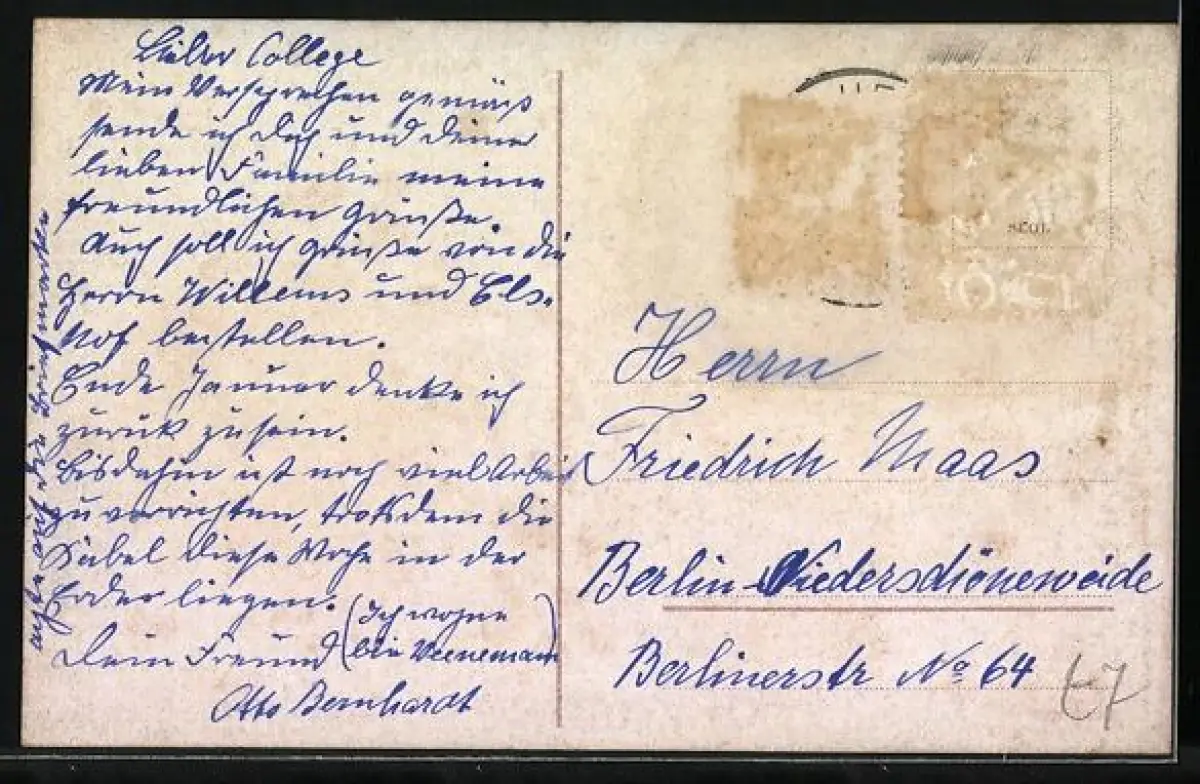 Lieber College
Mein Versprechen gemäß
sende ich Dich und deine
lieben Familie meine
freundlichen Grüße.
Auch soll ich Grüße von die
Herrn Willems und Els-
hof bestellen.
Ende Januar denke ich
zurück zu sein.
Bis dahin ist noch viel Arbeit
zu verrichten, trotsdem die
Kabel diese Woche in der
Erde liegen. (Ich wohne
Dein Freund bei Veeneman)
Otto Bernhardt
Herrn
Friedrich Maas
Berlin-Niederschöneweide
Berlinerstr No 64